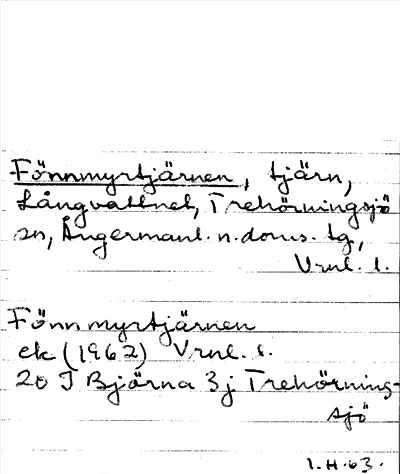 Fönnmyrtjärnen, tjärn,
Långvattnet, Trehörningsjö
sn, Ångermanl. n. doms. tg,
Vrnl. l.
Fönnmyrtjärnen
ek (1962) Vrnl. l.
20 J Björna 3 j Trehörning-
sjö
1.H.63.